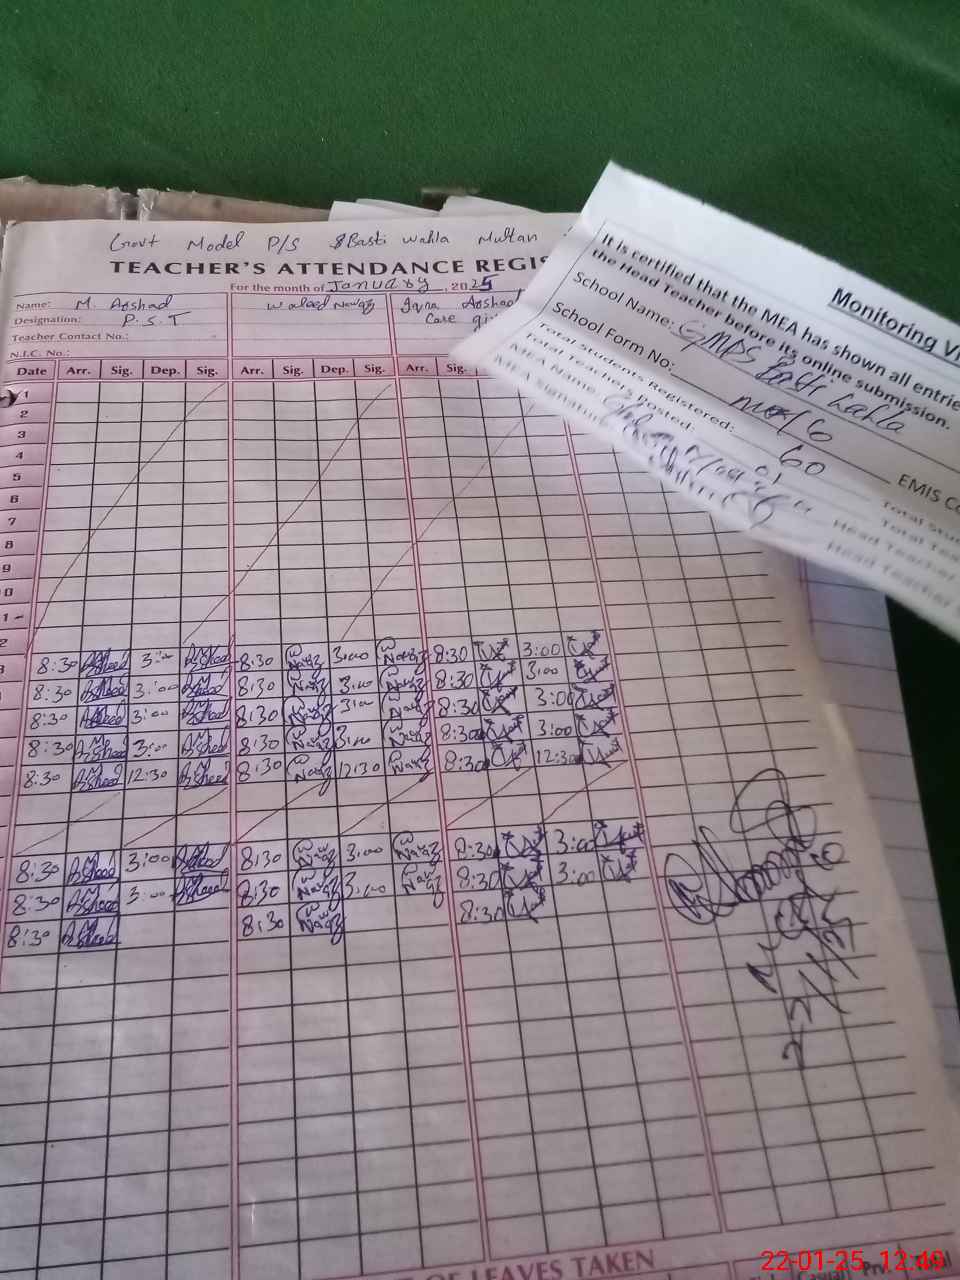 Govt Model P/S Basti Wahla Multan
TEACHER'S ATTENDANCE REGIS
For the month of January, 2025
Name: M. Arshad Waleed Nawaz Iqra Arshad
Designation: P.S.T Care gi
Teacher Contact No.:
N.I.C. No.:
Date Arr. Sig. Dep. Sig. Arr. Sig. Dep. Sig. Arr. Sig.
1
2
3
4
5
6
7
8
9
0
1
2
3 8:30 Arshad 3:00 Arshad 8:30 W Nawaz 3:00 W Nawaz 8:30 3:00
8:30 Arshad 3:00 Arshad 8:30 W Nawaz 3:00 W Nawaz 8:30 3:00
8:30 Arshad 3:00 Arshad 8:30 W Nawaz 3:00 W Nawaz 8:30 3:00
8:30 Arshad 3:00 Arshad 8:30 W Nawaz 3:00 W Nawaz 8:30 3:00
8:30 Arshad 12:30 Arshad 8:30 W Nawaz 12:30 W Nawaz 8:30 12:30
8:30 Arshad 3:00 Arshad 8:30 W Nawaz 3:00 W Nawaz 8:30 3:00
8:30 Arshad 3:00 Arshad 8:30 W Nawaz 3:00 W Nawaz 8:30 3:00
8:30 Arshad 8:30 W Nawaz 8:30
22/1/25
OF LEAVES TAKEN
Casual Prv. Total
Monitoring Vi
It is certified that the MEA has shown all entrie
the Head Teacher before its online submission.
School Name: GMPS Basti Wahla
School Form No: EMIS Co
Total Students Registered: 60 Total Stu
Total Teachers Posted: Total Tea
MEA Name: Head Teacher
MEA Signatur Head Teacher
22-01-25 12:49